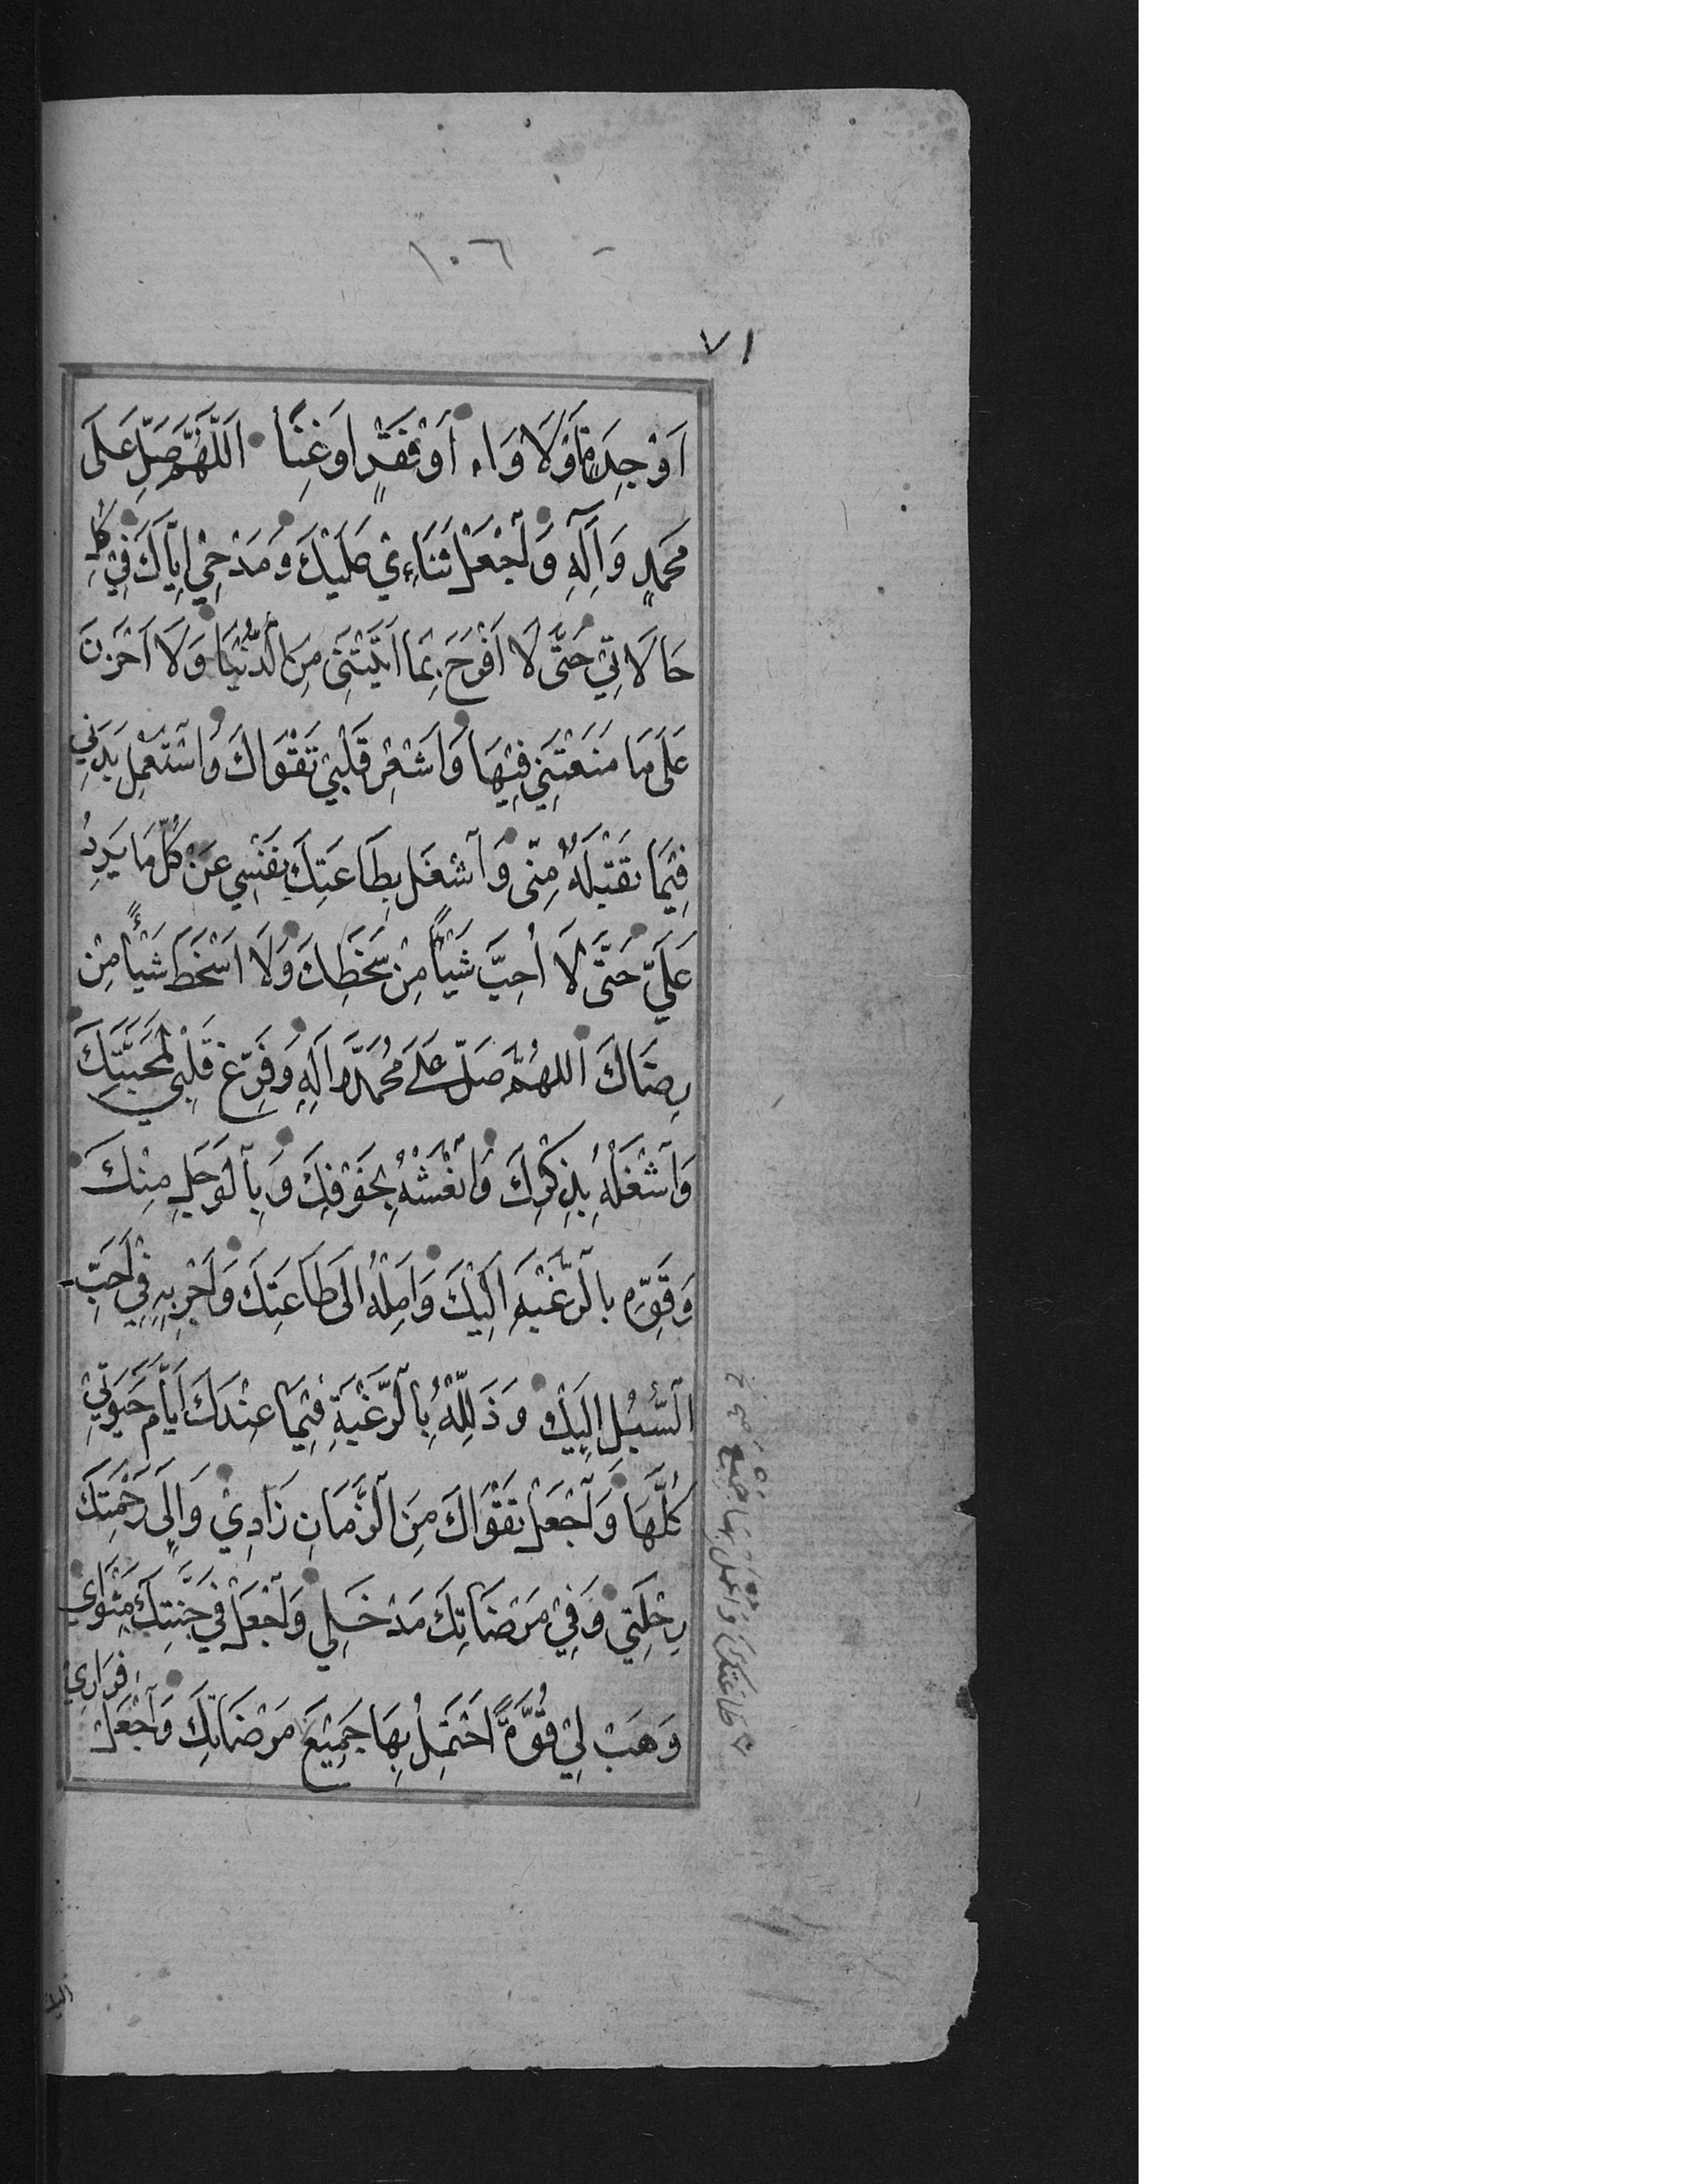 ١٠٦
٧١
اَوْ جِدَةٍ اَوْ لَا وَاءَ اَوْ فَقْرٍ اَوْ غِنًا اَللّٰهُمَّ صَلِّ عَلَى
مُحَمَّدٍ وَآلِهِ وَاجْعَلْ ثَنَاءِيْ عَلَيْكَ وَمَدْحِيْ اِيَّاكَ فِيْ كُلِّ
حَالَاتِيْ حَتّٰى لَا اَفْرَحَ بِمَا اٰتَيْتَنِيْ مِنَ الدُّنْيَا وَلَا اَحْزَنَ
عَلٰى مَا مَنَعْتَنِيْ فِيْهَا وَاَشْعِرْ قَلْبِيْ تَقْوَاكَ وَاسْتَعْمِلْ بَدَنِيْ
فِيْمَا تَقْبَلُهُ مِنِّى وَاشْغَلْ بِطَاعَتِكَ نَفْسِي عَنْ كُلِّ مَا يَرِدُ
عَلَيَّ حَتّٰى لَا اُحِبَّ شَيْئًا مِنْ سَخَطِكَ وَلَا اَسْخَطَ شَيْئًا مِنْ
رِضَاكَ اللّٰهُمَّ صَلِّ عَلٰى مُحَمَّدٍ وَاٰلِهِ وَفَرِّغْ قَلْبِيْ لِمَحَبَّتِكَ
وَاشْغَلْهُ بِذِكْرِكَ وَانْعَشْهُ بِخَوْفِكَ وَبِالْوَجَلِ مِنْكَ
وَقَوِّهِ بِالرَّغْبَةِ اِلَيْكَ وَاَمِلْهُ اِلٰى طَاعَتِكَ وَاَجْرِ بِهِ فِيْ اَحَبِّ
السُّبُلِ اِلَيْكَ وَذَلِّلْهُ بِالرَّغْبَةِ فِيْمَا عِنْدَكَ اَيَّامَ حَيٰوتِيْ
كُلَّهَا وَاجْعَلْ تَقْوَاكَ مِنَ الزَّمَانِ زَادِيْ وَاِلٰى رَحْمَتِكَ
رِحْلَتِيْ وَفِيْ مَرْضَاتِكَ مَدْخَلِي وَاجْعَلْ فِيْ جَنَّتِكَ مَثْوَايَ
وَهَبْ لِيْ قُوَّةً اَحْتَمِلُ بِهَا جَمِيْعَ مَرْضَاتِكَ وَاجْعَلْ
فِرَارِيْ
طاعتك واعمل بها جميع
اليك